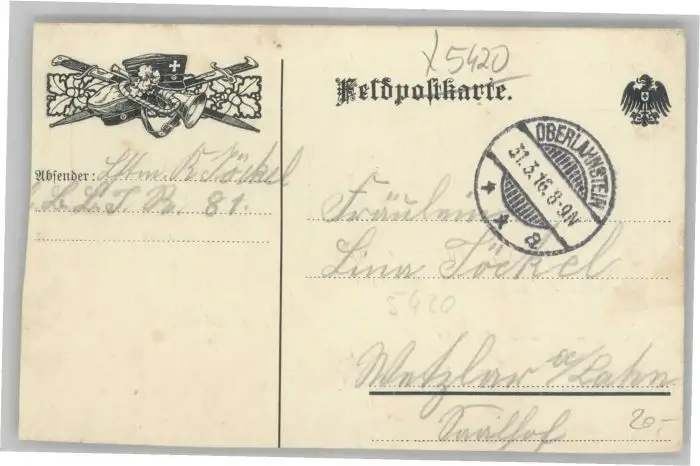 5420
Feldpostkarte.
OBERLAHNSTEIN
31.3.16.8-9N
a
Absender: Lstm. K. Jöckel
L. T. R. 81.
Fräulein
Lina Jöckel
5420
Wetzlar a/Lahn
Saalhof
20.-